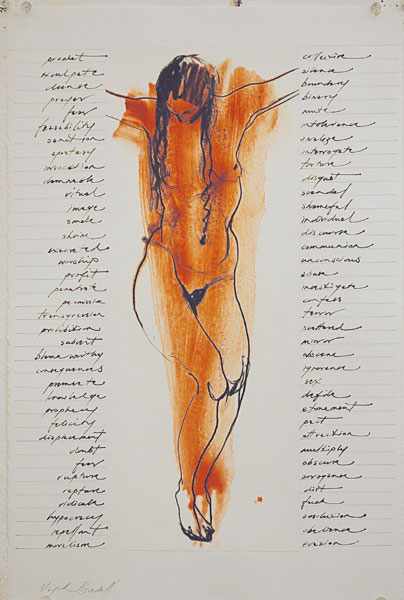 exculpate
prayer
fear
feasibility
sanction
apostasy
invocation
damnable
ritual
image
smoke
shame
execrated
worship
profit
penetrate
permission
transgression
prohibition
subvert
blame worthy
consequences
knowledge
prophecy
felicity
displacement
doubt
fear
rupture
rapture
ridicule
hypocrisy
repellant
moralism
collective
silence
boundary
binary
mute
intolerance
interrogate
torture
disgust
scandal
shameful
individual
discourse
communion
unconscious
investigate
confess
terror
scattered
mirror
obscene
ignorance
sex
defile
atonement
pact
attraction
multiply
obscure
arrogance
dirt
fuck
obedience
evasion